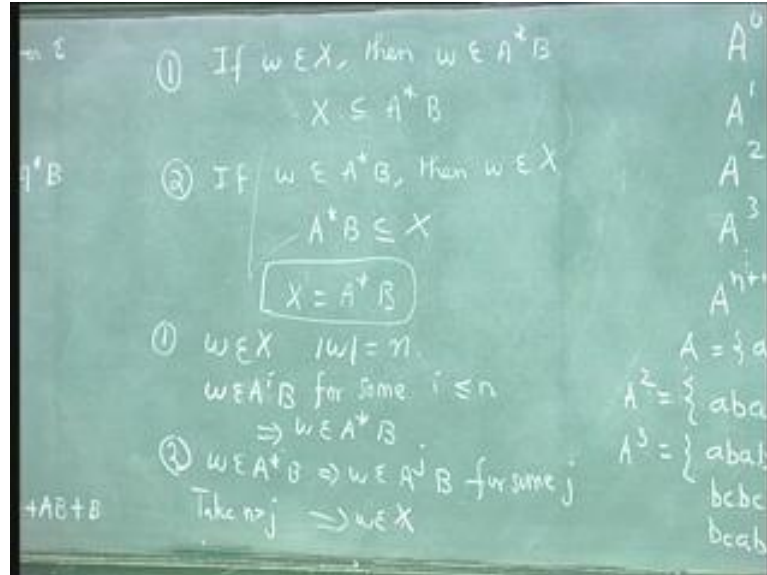 ① If w ε X, then w ε A*B
X ⊆ A*B
② If w ε A*B, then w ε X
A*B ⊆ X
X = A*B
① w ε X |w| = n.
w ε AⁱB for some i ≤ n
⇒ w ε A*B
② w ε A*B ⇒ w ε AʲB for some j
Take n>j ⇒ w ε X
ε
A*B
+AB+B
A⁰
A¹
A²
A³
Aⁿ⁺
A = { a
A² = { aba
A³ = { abab
bcbc
bcab